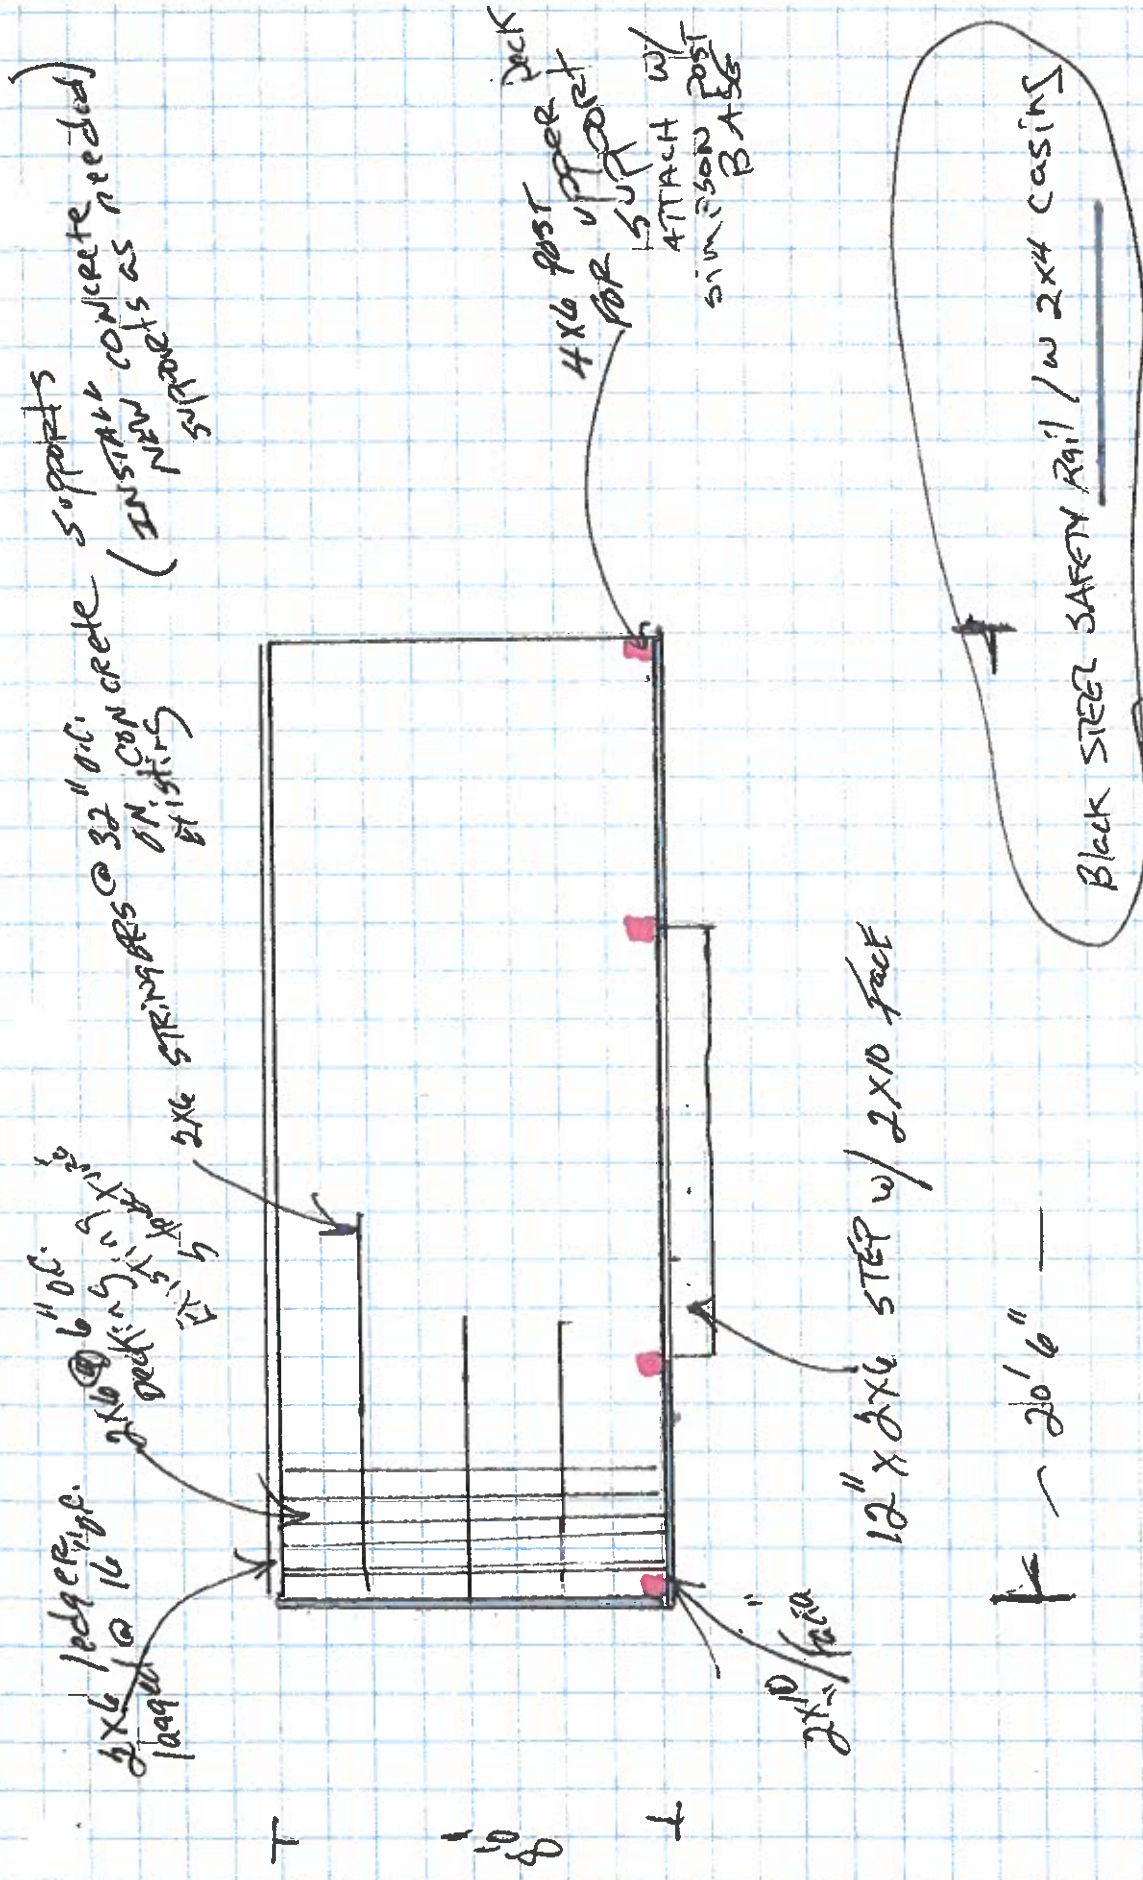 2x6 ledger
lagged @ 16" o.c.
2x6 @ 6" o.c.
Decking
2x6 STRINGERS @ 32" o.c.
ON CONCRETE Supports
Existing
(INSTALL CONCRETE
NEW
supports as needed)
4x6 POST
FOR UPPER Deck
SUPPORT
ATTACH W/
SIMPSON POST
BASE
8'
2x10
facia
12" x 2x6 STEP w/ 2x10 face
~ 20' 6" —
Black STEEL SAFETY Rail / w 2x4 casing